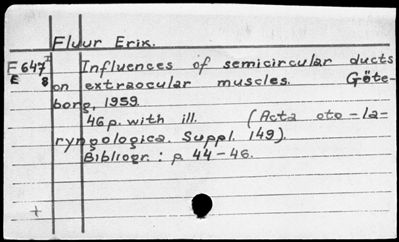 Fluur Erik.
E647 I Influences of semicircular ducts
E 8 on extraocular muscles. Göte-
borg, 1959.
46p. with ill. (Acta oto-la-
ryngologica. Suppl. 149).
Bibliogr.: p. 44-46.